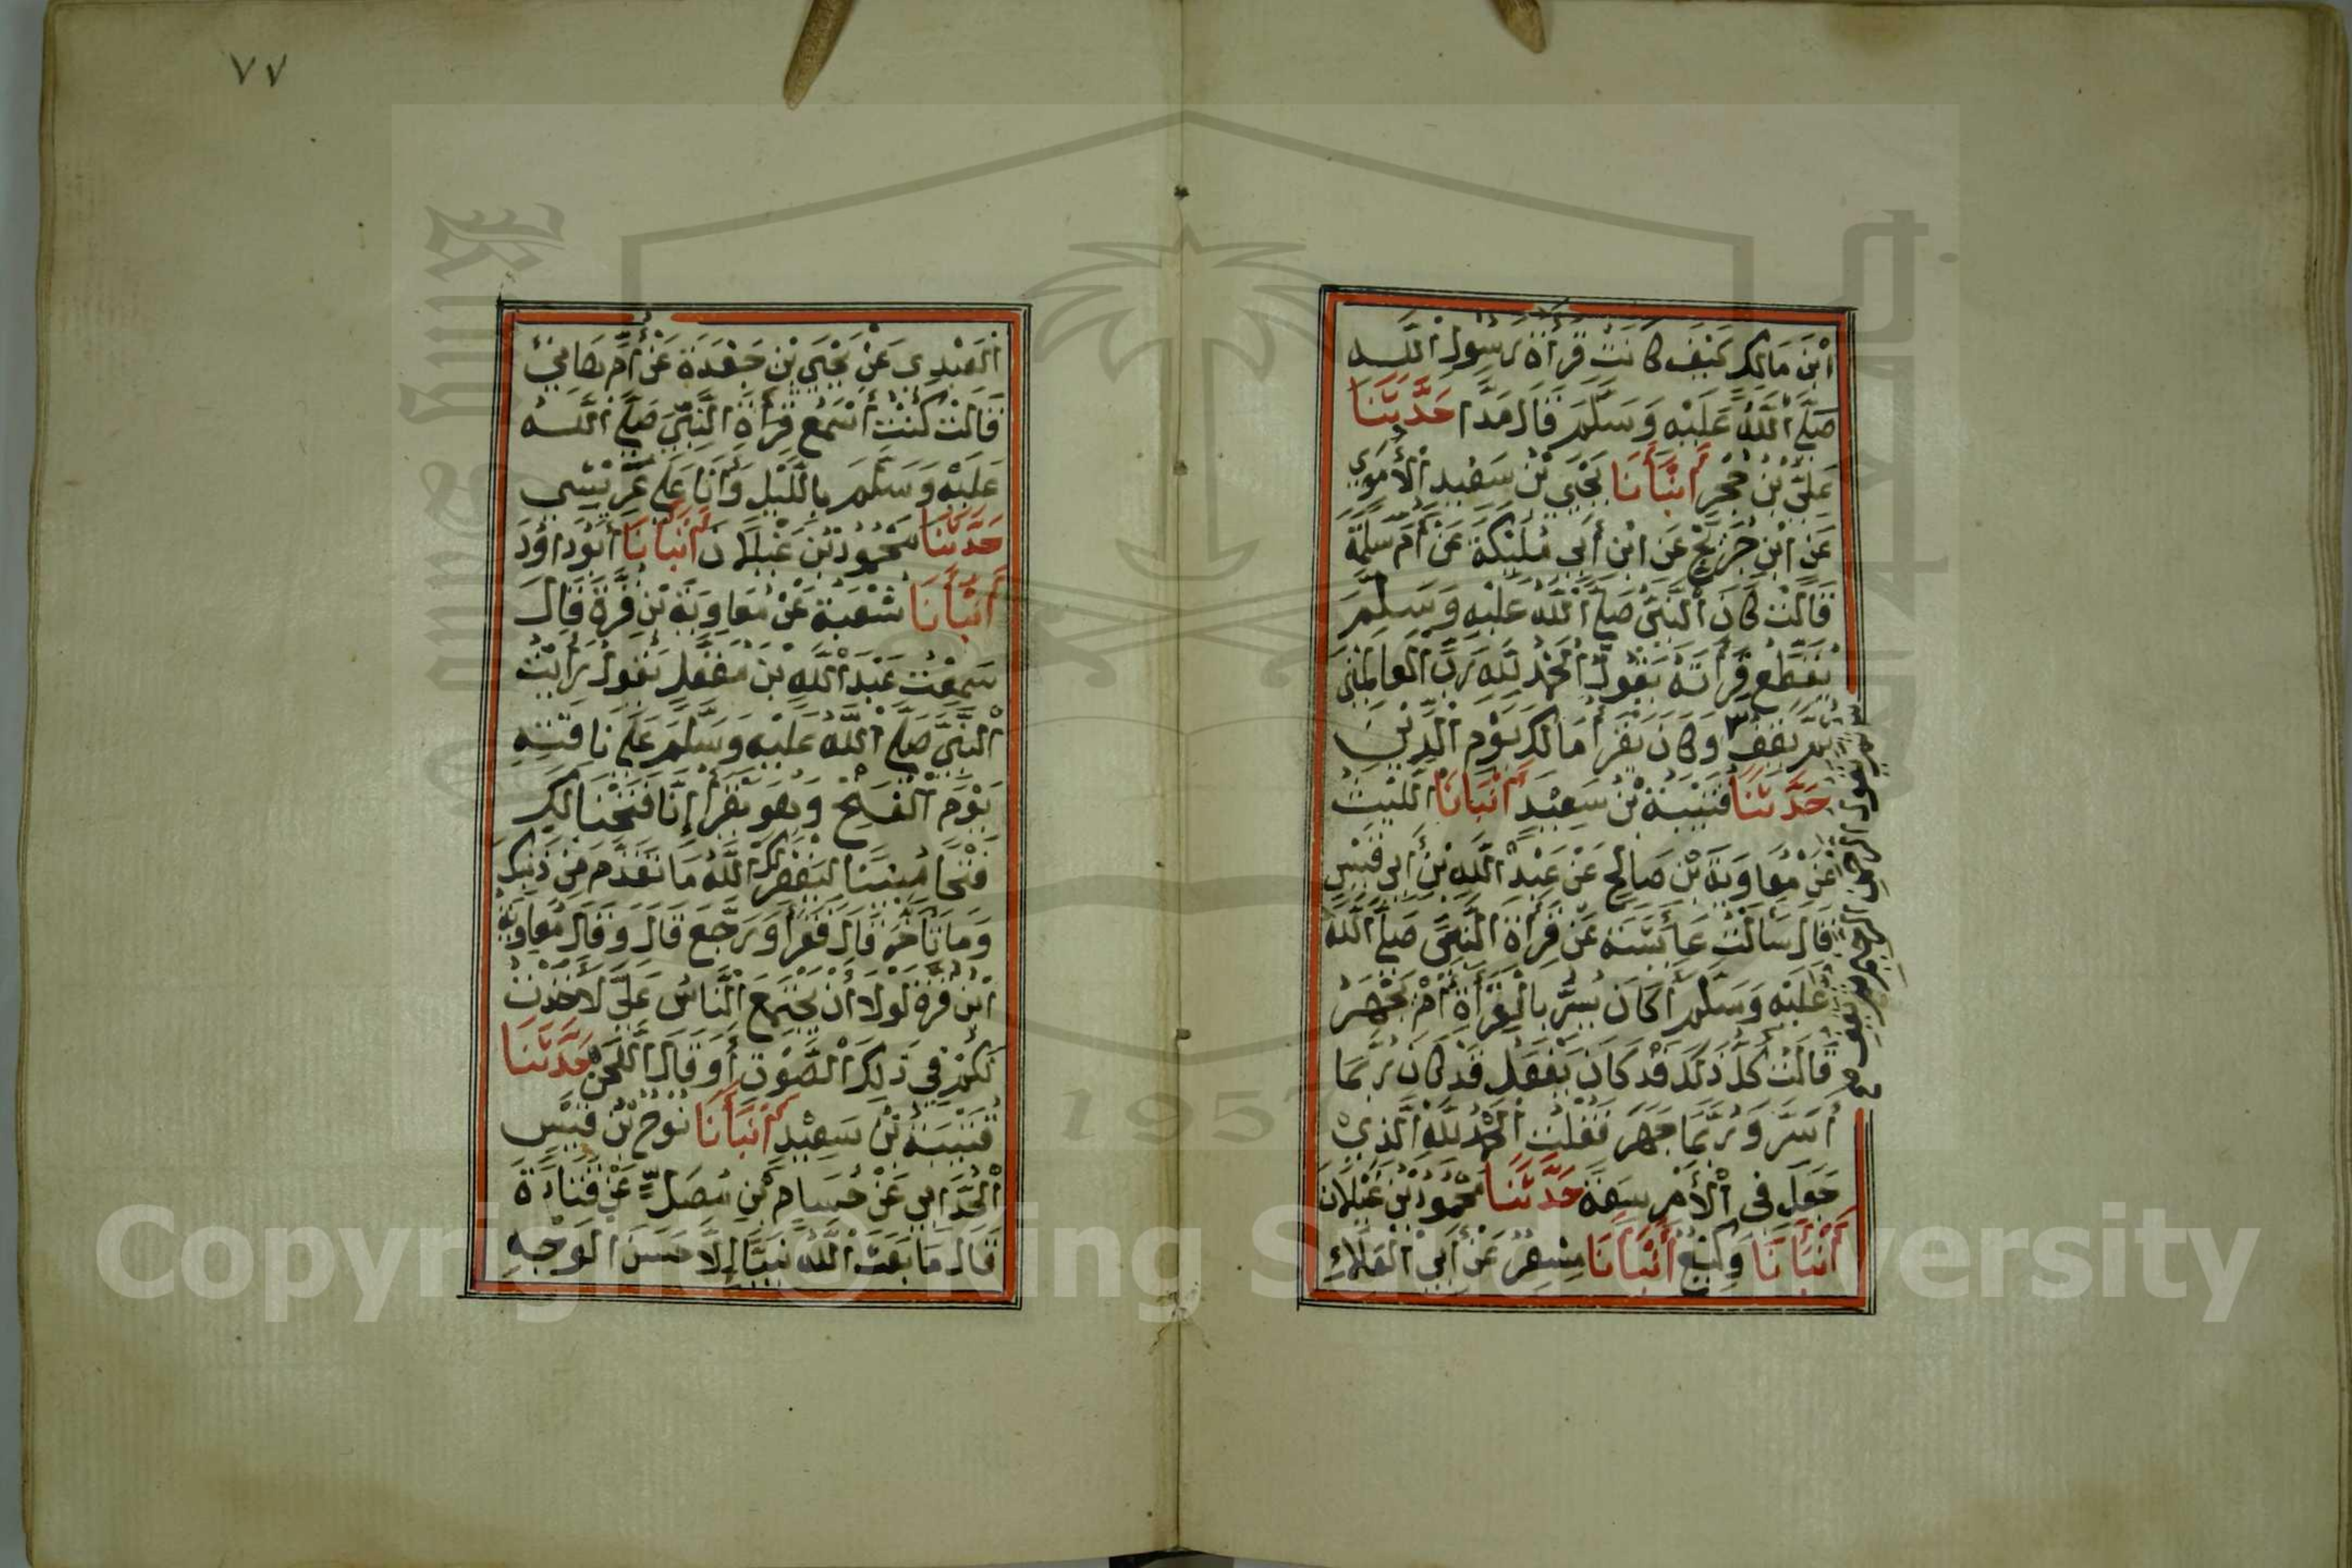 ابْنَ مَالِكٍ كَيْفَ كَانَتْ قِرَأَةُ رَسُولِ اللَّه
صَلَّى اللَّهُ عَلَيْهِ وَسَلَّمَ قَالَ مَدًّا حَدَّثَنَا
عَلِيُّ بْنُ حُجْرٍ أَنْبَأَنَا يَحْيَى بْنُ سَعِيدٍ الْأُمَوِيُّ
عَنِ ابْنِ جُرَيْجٍ عَنِ ابْنِ أَبِي مُلَيْكَةَ عَنْ أُمِّ سَلَمَةَ
قَالَتْ كَانَ النَّبِيُّ صَلَّى اللَّهُ عَلَيْهِ وَسَلَّمَ
يُقَطِّعُ قِرَأَتَهُ يَقُولُ الْحَمْدُ لِلَّهِ رَبِّ الْعَالَمِينَ
ثُمَّ يَقِفُ ٣ وَكَانَ يَقْرَأُ مَالِكِ يَوْمِ الدِّينِ
ثم يقول الرحمن الرحيم ثم يقف صح
حَدَّثَنَا قُتَيْبَةُ بْنُ سَعِيْدٍ أَنْبَأَنَا اللَّيْثُ
عَنْ مُعَاوِيَةَ بْنِ صَالِحٍ عَنْ عَبْدِ اللَّهِ بْنِ أَبِي قَيْسٍ
قَالَ سَأَلْتُ عَائِشَةَ عَنْ قِرَأَةِ النَّبِيِّ صَلَّى اللَّهُ
عَلَيْهِ وَسَلَّمَ أَكَانَ يُسِرُّ بِالْقِرَأَةِ أَمْ يَجْهَرُ
قَالَتْ كُلَّ ذَلِكَ قَدْ كَانَ يَفْعَلُ قَدْ كَانَ رُبَّمَا
أَسَرَّ وَرُبَّمَا جَهَرَ فَقُلْتُ الْحَمْدُ لِلَّهِ الَّذِيْ
جَعَلَ فِي الْأَمْرِ سَعَةً حَدَّثَنَا مَحْمُودُ بْنُ غَيْلَانَ
أَنْبَأَنَا وَكِيْعٌ أَنْبَأَنَا مِسْعَرٌ عَنْ أَبِي الْعَلَاءِ
٧٧
الْعَبْدِيِ عَنْ يَحْيَى بْنِ جَعْدَةَ عَنْ أُمِّ هَانِئٍ
قَالَتْ كُنْتُ أَسْمَعُ قِرَأَةَ النَّبِيِّ صَلَّى اللَّه
عَلَيْهِ وَسَلَّمَ بِاللَّيْلِ وَأَنَا عَلَى عَرِيْشِي
حَدَّثَنَا مَحْمُودُ بْنُ غَيْلَانَ أَنْبَأَنَا أَبُو دَاوُدَ
أَنْبَأَنَا شُعْبَةُ عَنْ مُعَاوِيَةَ بْنِ قُرَّةَ قَالَ
سَمِعْتُ عَبْدَ اللَّهِ بْنَ مُغَفَّلٍ يَقُولُ رَأَيْتُ
النَّبِيَّ صَلَّى اللَّهُ عَلَيْهِ وَسَلَّمَ عَلَى نَاقَتِهِ
يَوْمَ الْفَتْحِ وَهُوَ يَقْرَأُ إِنَّا فَتَحْنَا لَكَ
فَتْحًا مُبِينًا لِيَغْفِرَ لَكَ اللَّهُ مَا تَقَدَّمَ مِنْ ذَنْبِكَ
وَمَا تَأَخَّرَ قَالَ فَقَرَأَ وَرَجَّعَ قَالَ وَقَالَ مُعَاوِيَةُ
ابْنُ قُرَّةَ لَوْلَا أَنْ يَجْتَمِعَ النَّاسُ عَلَيَّ لَأَخَذْتُ
لَكُمْ فِي ذَلِكَ الصَّوْتِ أَوْ قَالَ اللَّحْنِ حَدَّثَنَا
قُتَيْبَةُ بْنُ سَعِيْدٍ أَنْبَأَنَا نُوْحُ بْنُ قَيْسٍ
الْحُدَّانِي عَنْ حُسَامِ بْنِ مُصَكٍّ عَنْ قَتَادَةَ
قَالَ مَا بَعَثَ اللَّهُ نَبِيًّا إِلَّا حَسَنَ الْوَجْهِ
Copyright © King Saud University
1957